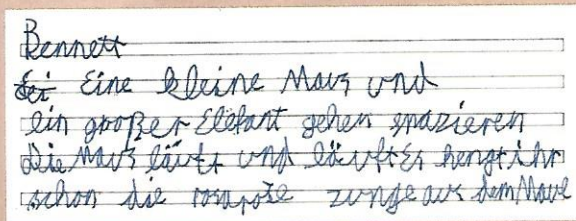 Bennett
Eine kleine Maus und
ein großer Elefant gehen spazieren
Die Maus läuft und läuft Es hengt ihr
schon die rosarote zunge aus dem Maul